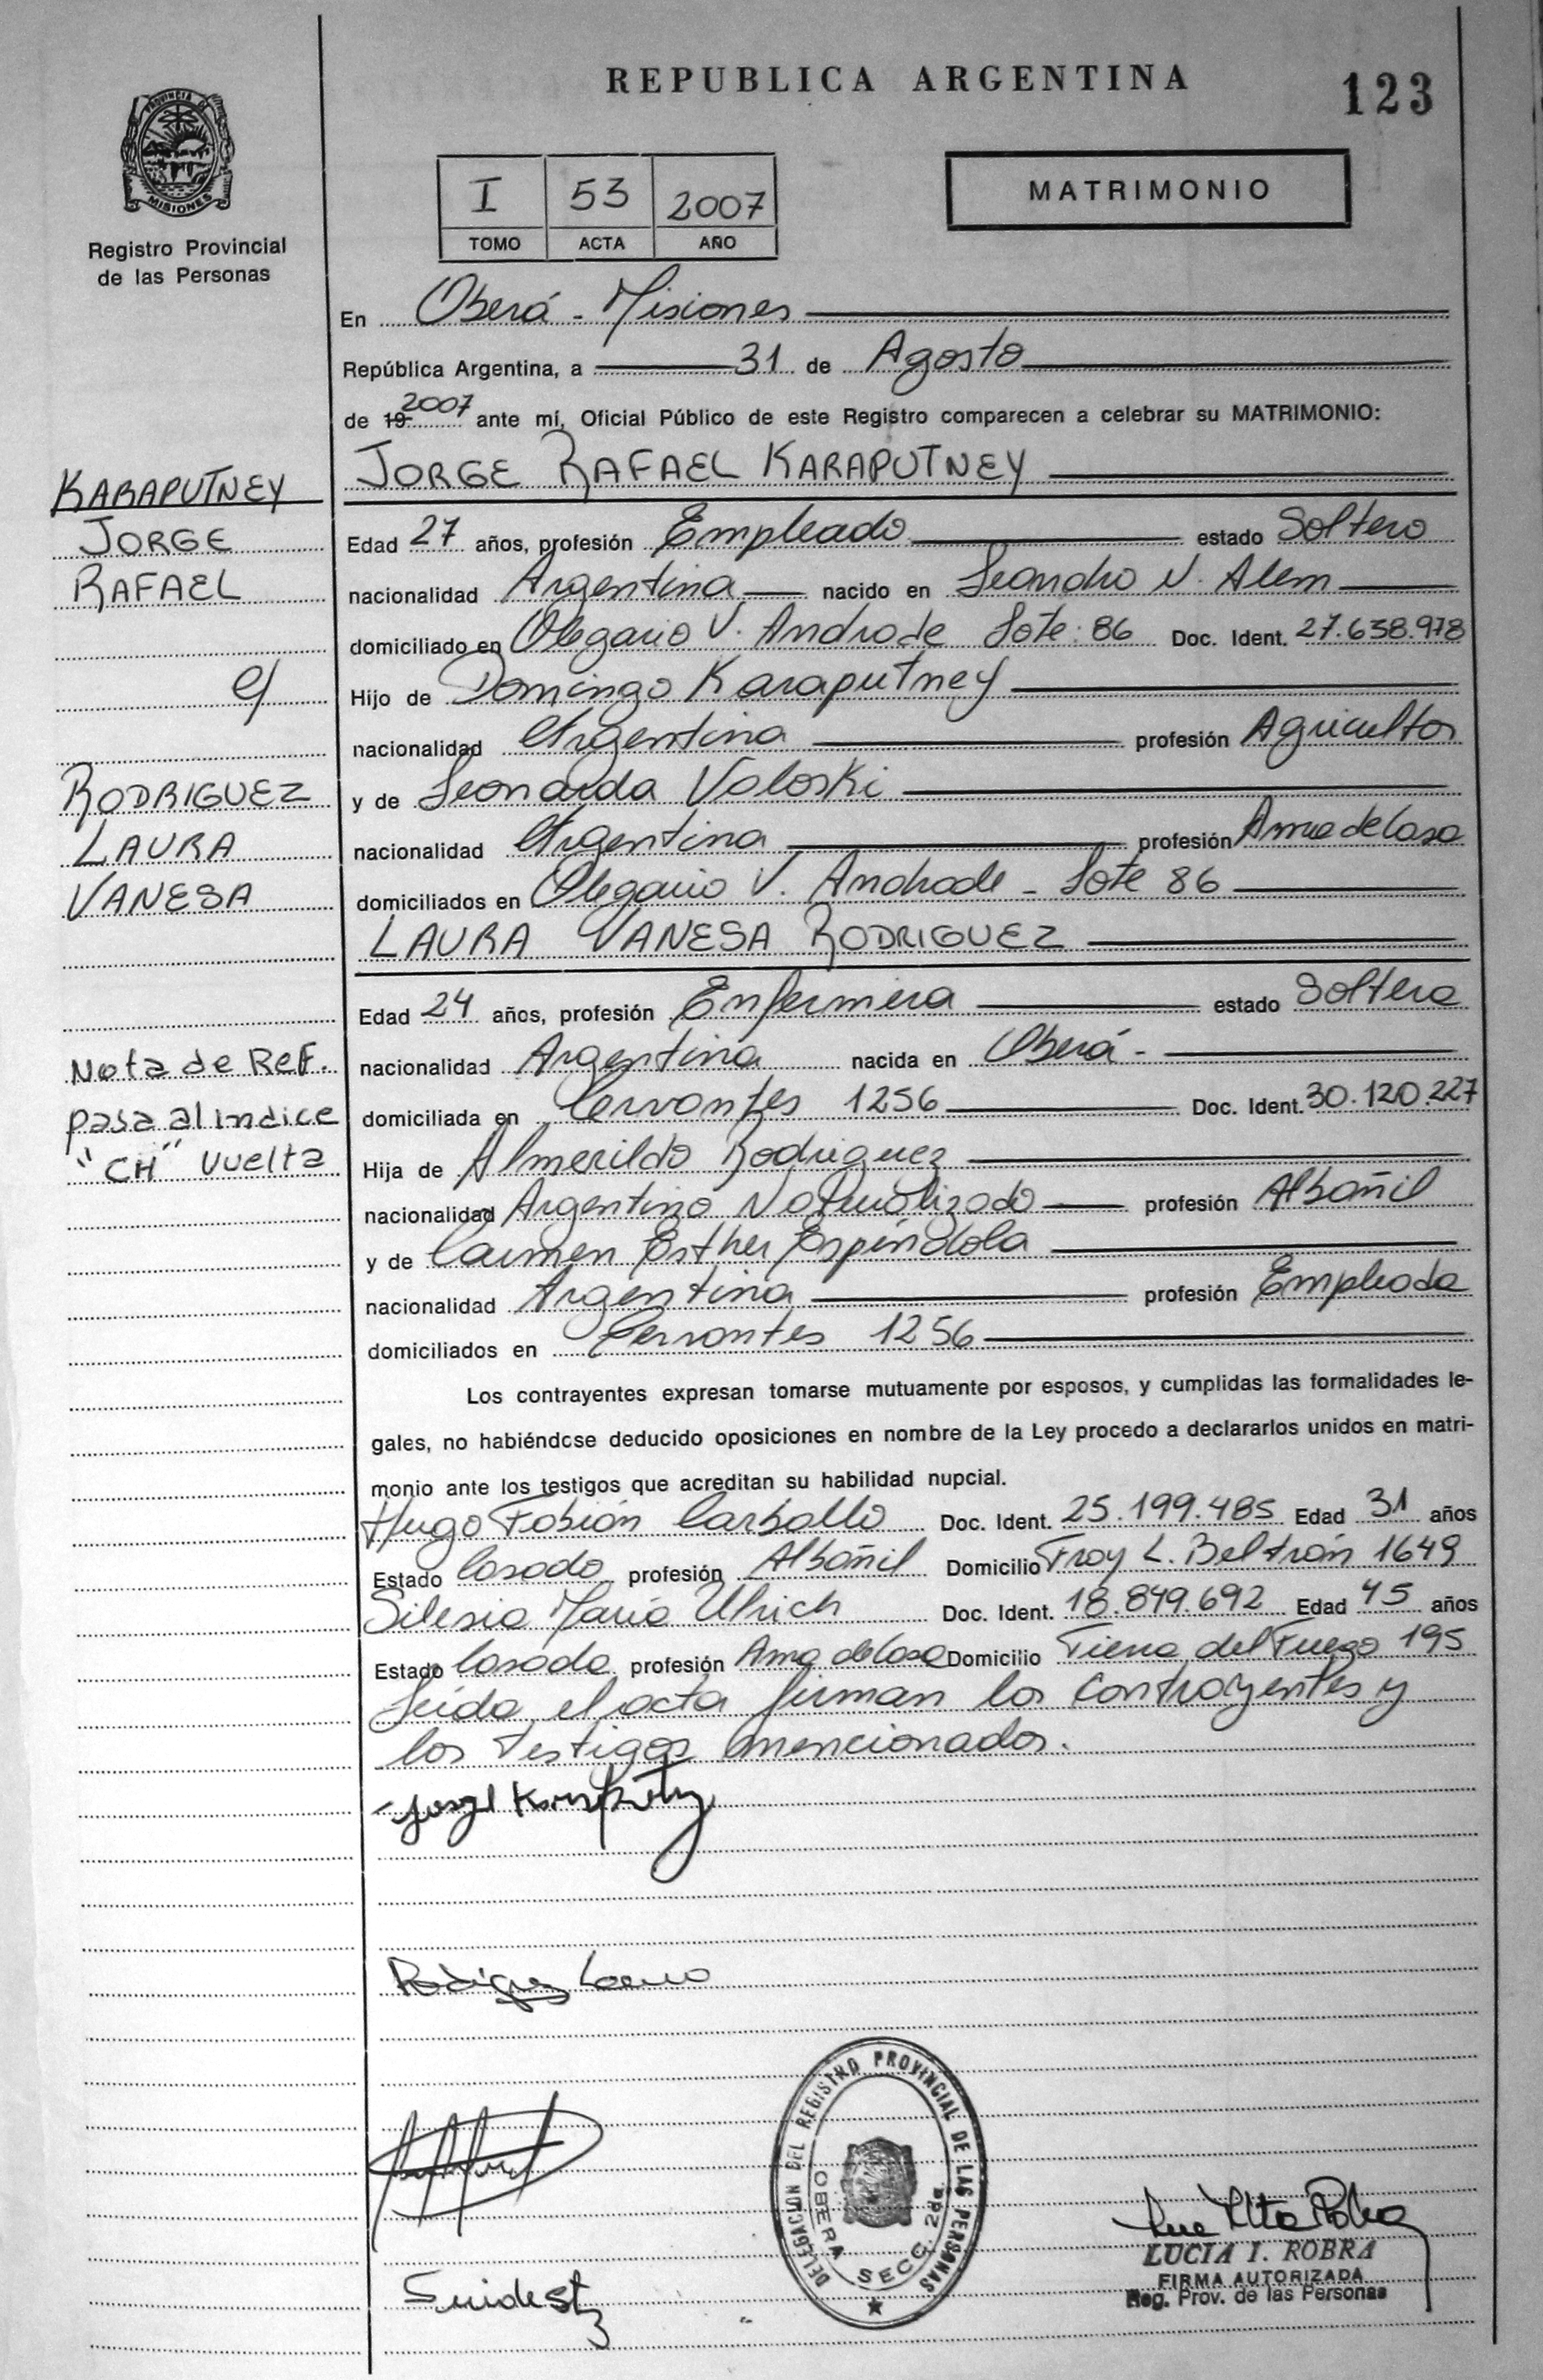 REPUBLICA ARGENTINA
123
PROVINCIA DE
MISIONES
Registro Provincial
de las Personas
I 53 2007
TOMO ACTA AÑO
MATRIMONIO
En Oberá - Misiones
República Argentina, a 31 de Agosto
de 19 2007 ante mí, Oficial Público de este Registro comparecen a celebrar su MATRIMONIO:
JORGE RAFAEL KARAPUTNEY
KARAPUTNEY
JORGE
RAFAEL
c/
RODRIGUEZ
LAURA
VANESA
Nota de Ref.
pasa al indice
"CH" vuelta
Edad 27 años, profesión Empleado estado Soltero
nacionalidad Argentina nacido en Leandro N. Alem
domiciliado en Olegario V. Andrade Lote: 86 Doc. Ident. 27.638.978
Hijo de Domingo Karaputney
nacionalidad Argentina profesión Agricultor
y de Leonarda Voloski
nacionalidad Argentina profesión Ama de Casa
domiciliados en Olegario V. Andrade - Lote 86
LAURA VANESA RODRIGUEZ
Edad 24 años, profesión Enfermera estado Soltera
nacionalidad Argentina nacida en Oberá -
domiciliada en Cervantes 1256 Doc. Ident. 30.120.227
Hija de Almerildo Rodriguez
nacionalidad Argentino Naturalizado profesión Albañil
y de Carmen Esther Espíndola
nacionalidad Argentina profesión Empleada
domiciliados en Cervantes 1256
Los contrayentes expresan tomarse mutuamente por esposos, y cumplidas las formalidades le-
gales, no habiéndose deducido oposiciones en nombre de la Ley procedo a declararlos unidos en matri-
monio ante los testigos que acreditan su habilidad nupcial.
Hugo Fabián Carballo Doc. Ident. 25.199.485 Edad 31 años
Estado Casado profesión Albañil Domicilio Fray L. Beltrán 1649
Silesia María Ulrich Doc. Ident. 18.849.692 Edad 45 años
Estado Casada profesión Ama de Casa Domicilio Tierra del Fuego 195
Leída el acta firman los contrayentes y
los testigos mencionados.
Rodriguez Laura
DELEGACION DEL REGISTRO PROVINCIAL DE LAS PERSONAS
OBERA SECC. 2da.
LUCIA I. ROBRA
FIRMA AUTORIZADA
Reg. Prov. de las Personas